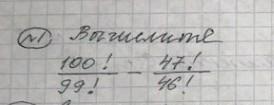 №1 Вычислите
100!/99! − 47!/46!